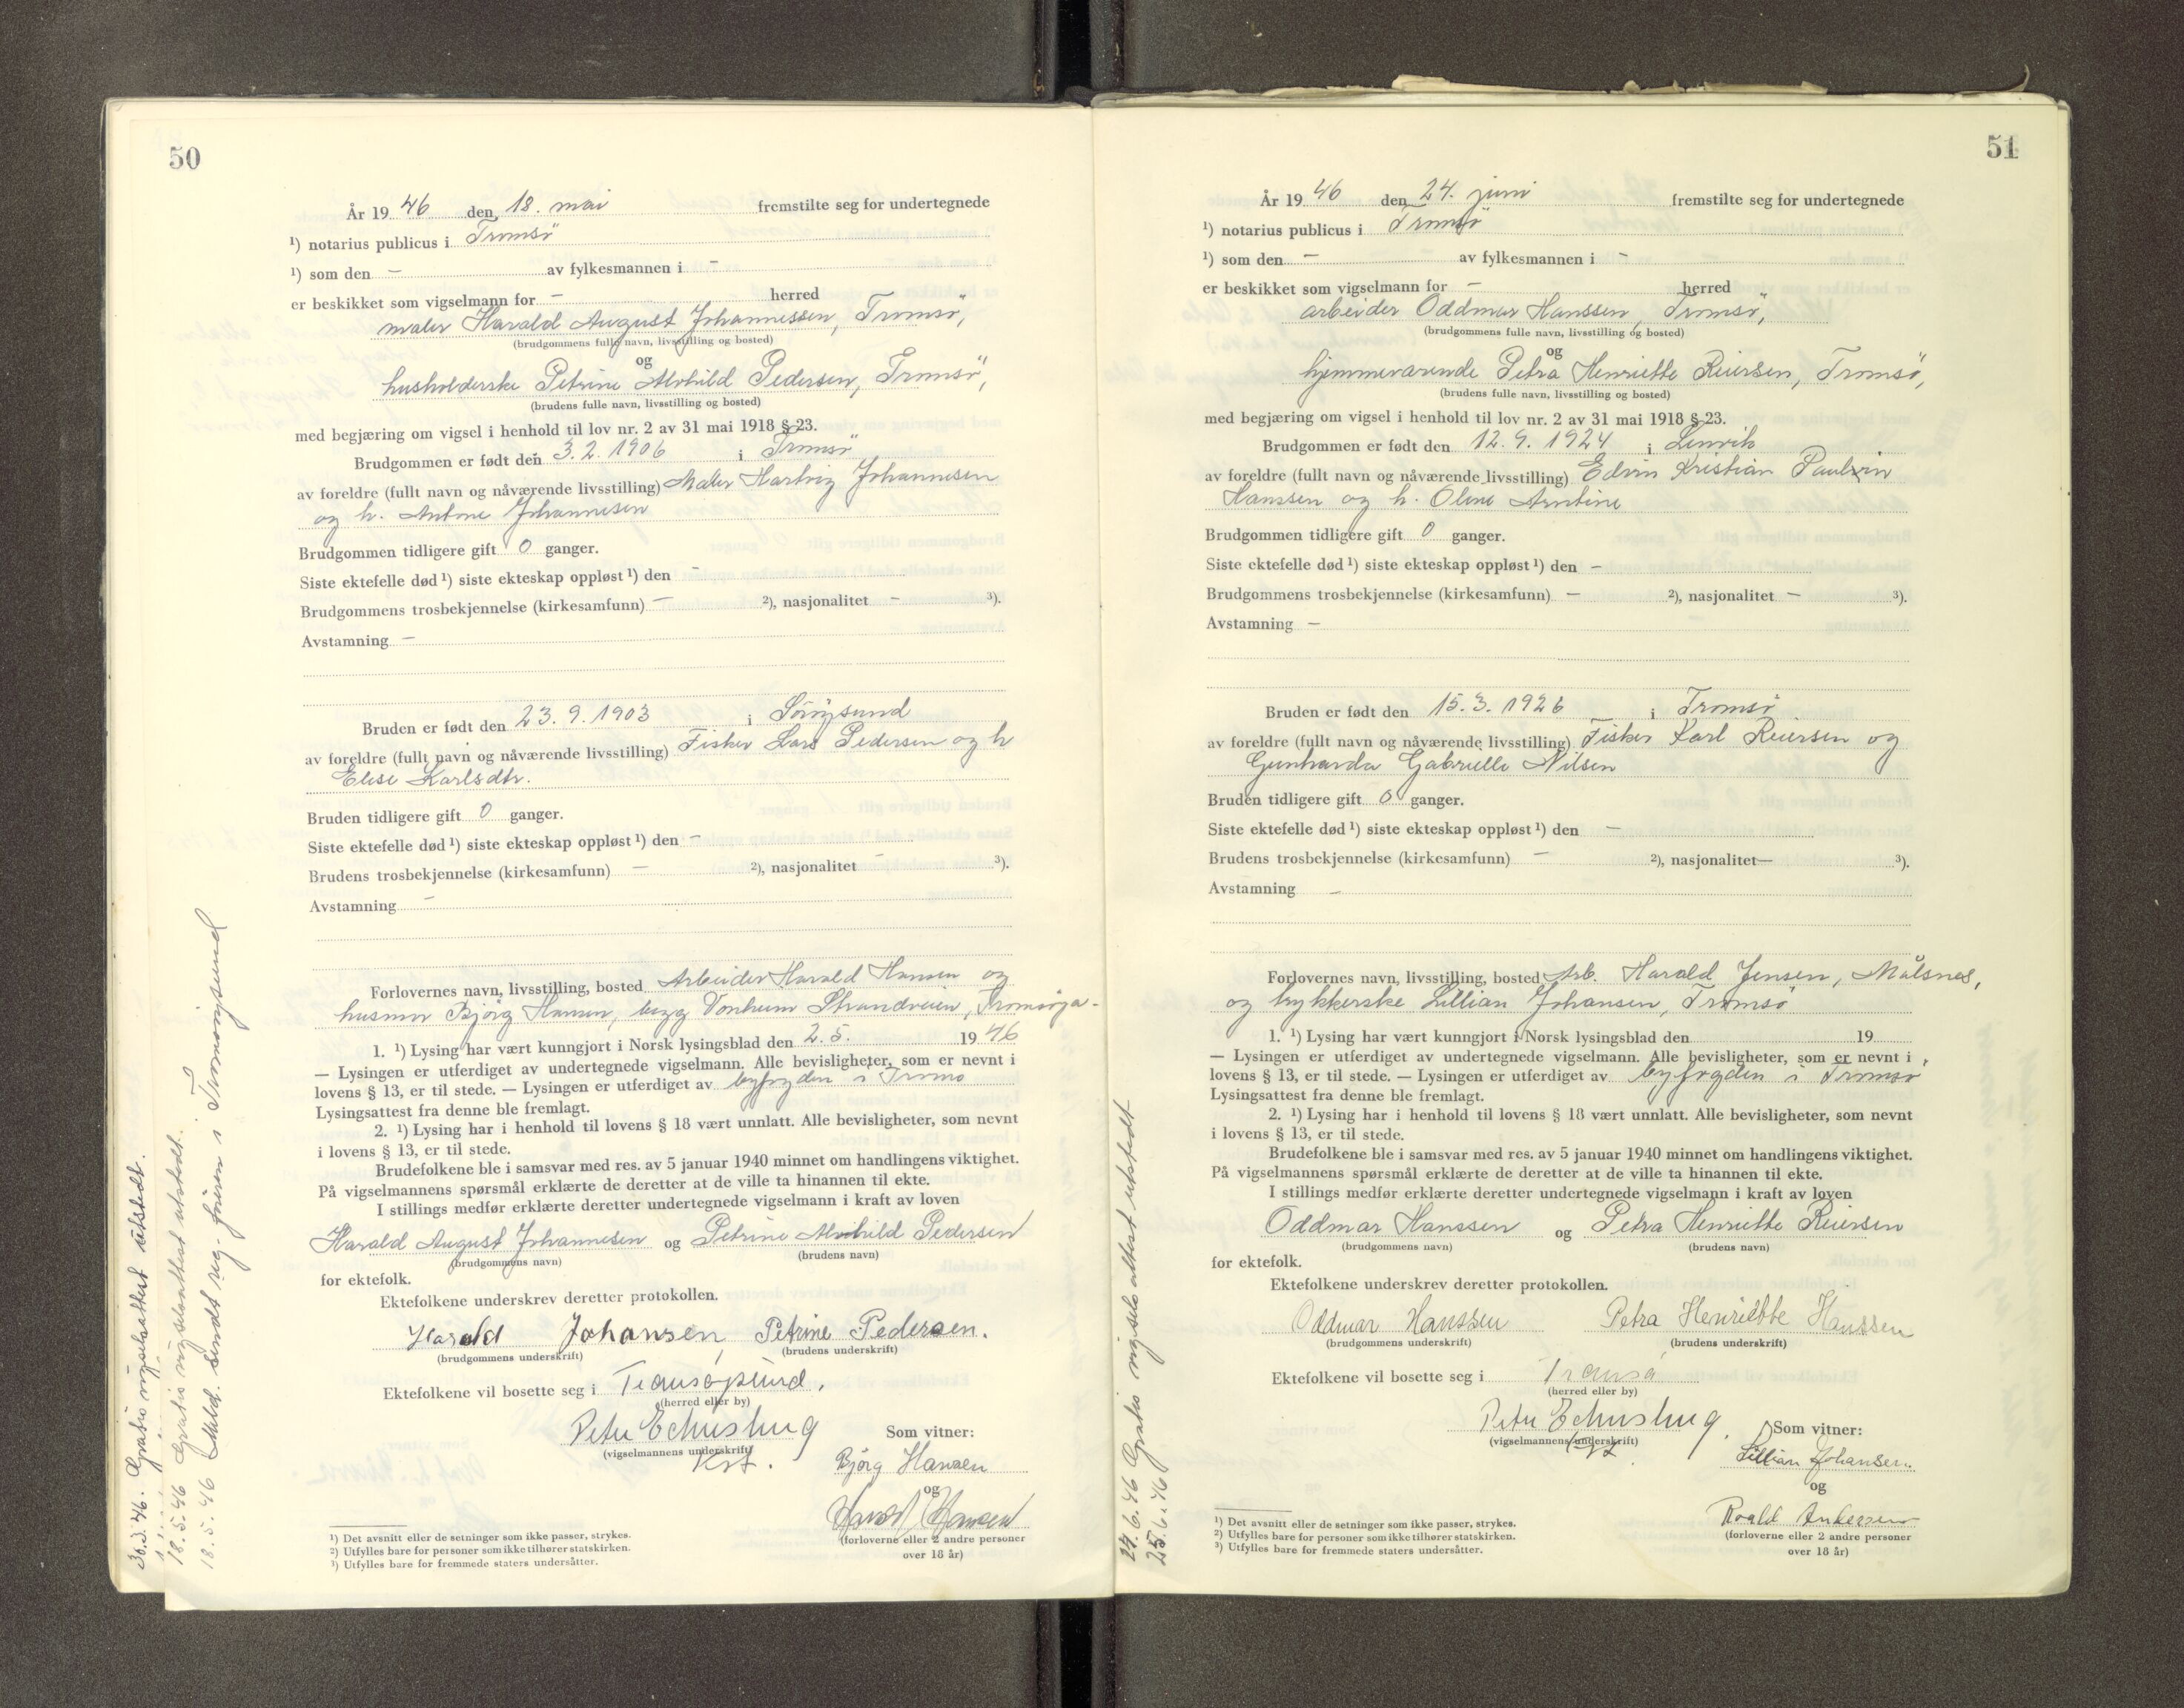 50
År 19 46 den 18. mai fremstilte seg for undertegnede
¹) notarius publicus i Tromsö
¹) som den – av fylkesmannen i –
er beskikket som vigselmann for – herred
maler Harald August Johannessen, Tromsö,
(brudgommens fulle navn, livsstilling og bosted)
og
husholderske Petrine Alvhild Pedersen, Tromsö,
(brudens fulle navn, livsstilling og bosted)
med begjæring om vigsel i henhold til lov nr. 2 av 31 mai 1918 § 23.
Brudgommen er født den 3.2.1906 i Tromsö
av foreldre (fullt navn og nåværende livsstilling) Maler Hartvig Johannesen
og h. Antone Johannesen
Brudgommen tidligere gift 0 ganger.
Siste ektefelle død ¹) siste ekteskap oppløst ¹) den –
Brudgommens trosbekjennelse (kirkesamfunn) – ²), nasjonalitet – ³).
Avstamning –
Bruden er født den 23.9.1903 i Söröysund
av foreldre (fullt navn og nåværende livsstilling) Fisker Lars Pedersen og h
Elise Karlsdtr.
Bruden tidligere gift 0 ganger.
Siste ektefelle død ¹) siste ekteskap oppløst ¹) den –
Brudens trosbekjennelse (kirkesamfunn) – ²), nasjonalitet – ³).
Avstamning –
Forlovernes navn, livsstilling, bosted Arbeider Harald Hansen og
husmor Bjørg Hansen, begg Vonheim Strandveien, Tromsöya-
1. ¹) Lysing har vært kunngjort i Norsk lysingsblad den 2.5. 19 46
— Lysingen er utferdiget av undertegnede vigselmann. Alle bevisligheter, som er nevnt i
lovens § 13, er til stede. — Lysingen er utferdiget av byfogden i Tromsö
Lysingsattest fra denne ble fremlagt.
2. ¹) Lysing har i henhold til lovens § 18 vært unnlatt. Alle bevisligheter, som nevnt
i lovens § 13, er til stede.
Brudefolkene ble i samsvar med res. av 5 januar 1940 minnet om handlingens viktighet.
På vigselmannens spørsmål erklærte de deretter at de ville ta hinannen til ekte.
I stillings medfør erklærte deretter undertegnede vigselmann i kraft av loven
Harald August Johannesen og Petrine Alvhild Pedersen
(brudgommens navn) (brudens navn)
for ektefolk.
Ektefolkene underskrev deretter protokollen.
Harald Johansen Petrine Pedersen.
(brudgommens underskrift) (brudens underskrift)
Ektefolkene vil bosette seg i Tromsøysund.
(herred eller by)
(vigselmannens underskrift) Som vitner:
Bjørg Hansen
og
Harald Hansen
(forloverne eller 2 andre personer
over 18 år)
¹) Det avsnitt eller de setninger som ikke passer, strykes.
²) Utfylles bare for personer som ikke tilhører statskirken.
³) Utfylles bare for fremmede staters undersåtter.
Gratis vigselsattest utstedt.
18.5.46 Gratis vigselsattest utstedt.
18.5.46 Meld. sendt reg-føreren i Tromsöysund
51
År 19 46 den 24. juni fremstilte seg for undertegnede
¹) notarius publicus i Tromsö
¹) som den – av fylkesmannen i –
er beskikket som vigselmann for – herred
arbeider Oddmar Hanssen, Tromsö,
(brudgommens fulle navn, livsstilling og bosted)
og
hjemmeværende Petra Henriette Reiersen, Tromsö,
(brudens fulle navn, livsstilling og bosted)
med begjæring om vigsel i henhold til lov nr. 2 av 31 mai 1918 § 23.
Brudgommen er født den 12.9.1924 i Lenvik
av foreldre (fullt navn og nåværende livsstilling) Edvin Kristian Paulsin
Hanssen og h. Oline Arntine
Brudgommen tidligere gift 0 ganger.
Siste ektefelle død ¹) siste ekteskap oppløst ¹) den –
Brudgommens trosbekjennelse (kirkesamfunn) – ²), nasjonalitet – ³).
Avstamning –
Bruden er født den 15.3.1926 i Tromsö
av foreldre (fullt navn og nåværende livsstilling) Fisker Karl Reiersen og
Gunharda Gabrielle Nilsen
Bruden tidligere gift 0 ganger.
Siste ektefelle død ¹) siste ekteskap oppløst ¹) den –
Brudens trosbekjennelse (kirkesamfunn) – ²), nasjonalitet – ³).
Avstamning –
Forlovernes navn, livsstilling, bosted Arb. Harald Jensen, Målsnes,
og trykkerske Lillian Johansen, Tromsö
1. ¹) Lysing har vært kunngjort i Norsk lysingsblad den 19
— Lysingen er utferdiget av undertegnede vigselmann. Alle bevisligheter, som er nevnt i
lovens § 13, er til stede. — Lysingen er utferdiget av byfogden i Tromsö
Lysingsattest fra denne ble fremlagt.
2. ¹) Lysing har i henhold til lovens § 18 vært unnlatt. Alle bevisligheter, som nevnt
i lovens § 13, er til stede.
Brudefolkene ble i samsvar med res. av 5 januar 1940 minnet om handlingens viktighet.
På vigselmannens spørsmål erklærte de deretter at de ville ta hinannen til ekte.
I stillings medfør erklærte deretter undertegnede vigselmann i kraft av loven
Oddmar Hanssen og Petra Henriette Reiersen
(brudgommens navn) (brudens navn)
for ektefolk.
Ektefolkene underskrev deretter protokollen.
Oddmar Hanssen Petra Henriette Hanssen
(brudgommens underskrift) (brudens underskrift)
Ektefolkene vil bosette seg i Tromsø
(herred eller by)
(vigselmannens underskrift) Som vitner:
Lillian Johansen.
og
Roald Andersen
(forloverne eller 2 andre personer
over 18 år)
¹) Det avsnitt eller de setninger som ikke passer, strykes.
²) Utfylles bare for personer som ikke tilhører statskirken.
³) Utfylles bare for fremmede staters undersåtter.
24.6.46 Gratis vigselsattest utstedt
25.6.46